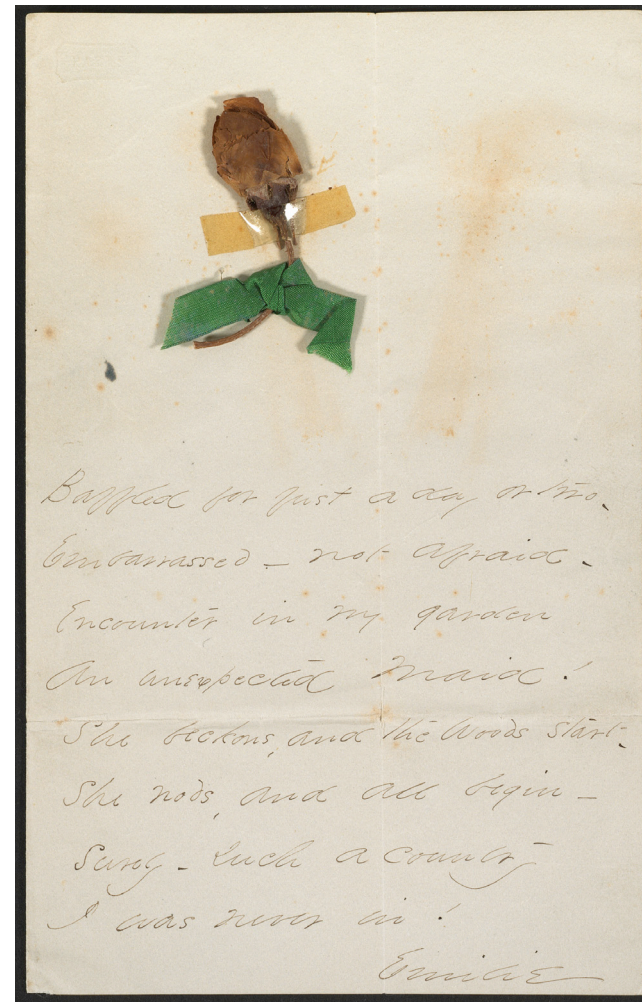 Baffled for just a day or two -
Embarrassed - not afraid -
Encounter, in my garden
An unexpected Maid!
She beckons, and the Woods start -
She nods, and all begin -
Surely - such a country
I was never in!
Emilie